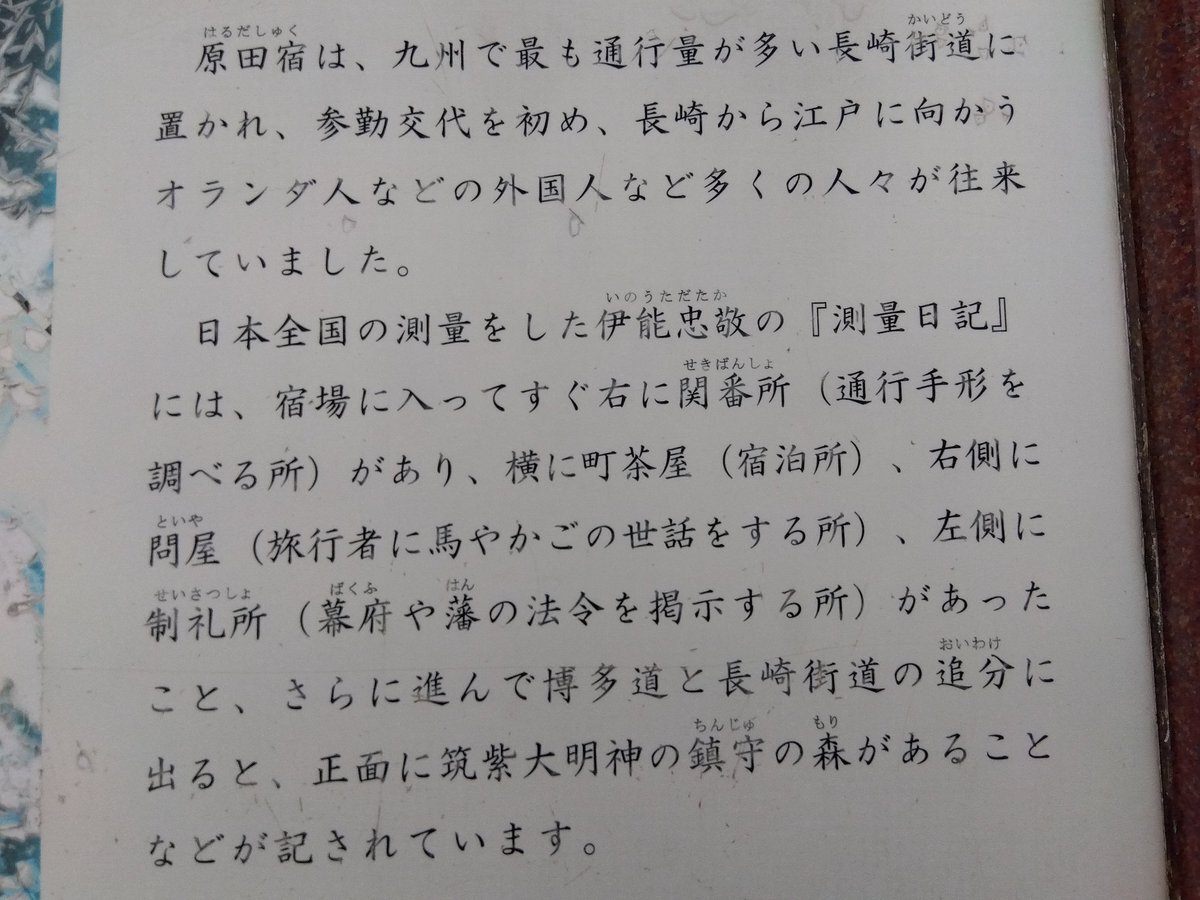 原田宿は、九州で最も通行量が多い長崎街道に
置かれ、参勤交代を初め、長崎から江戸に向かう
オランダ人などの外国人など多くの人々が往来
していました。
日本全国の測量をした伊能忠敬の『測量日記』
には、宿場に入ってすぐ右に関番所（通行手形を
調べる所）があり、横に町茶屋（宿泊所）、右側に
問屋（旅行者に馬やかごの世話をする所）、左側に
制礼所（幕府や藩の法令を掲示する所）があった
こと、さらに進んで博多道と長崎街道の追分に
出ると、正面に筑紫大明神の鎮守の森があること
などが記されています。
はるだしゅく
かいどう
いのうただたか
せきばんしょ
といや
せいさつしょ
ばくふ
はん
おいわけ
ちんじゅ
もり